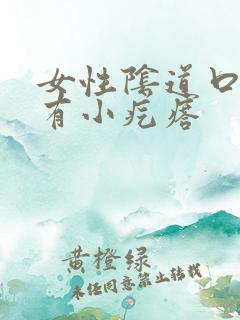 女性陰道口
有小疙瘩
黃橙绿
未经同意禁止转载